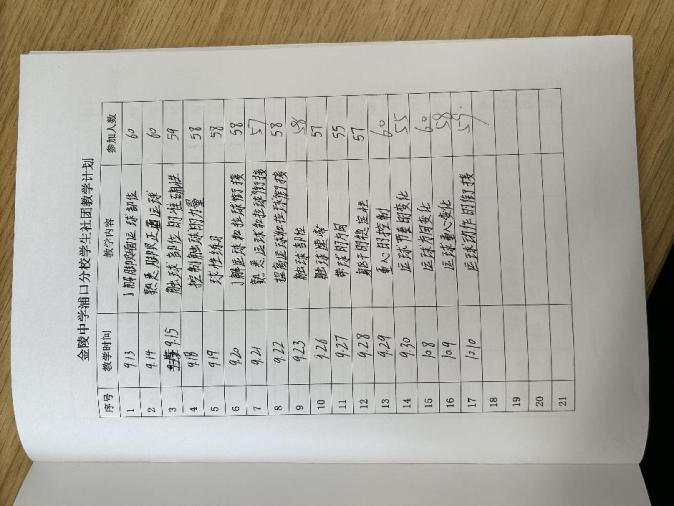 金陵中学浦口分校学生社团教学计划
序号 教学时间 教学内容 参加人数
1 9.13 了解脚背正面运球部位 60
2 9.14 熟悉脚背正面运球 60
3 9.15 触球部位的准确性 59
4 9.18 控制触球的力量 58
5 9.19 球性练习 58
6 9.20 了解运球和拉球衔接 58
7 9.21 熟悉运球和拉球衔接 57
8 9.22 提高运球和拉球衔接 58
9 9.23 触球部位 58
10 9.26 触球 57
11 9.27 带球的方向 55
12 9.28 躯干的稳定性 57
13 9.29 重心的控制 60
14 9.30 运球节奏的变化 55
15 10.8 运球方向变化 60
16 10.9 运球重心变化 58
17 10.10 运球动作的衔接 57
18
19
20
21